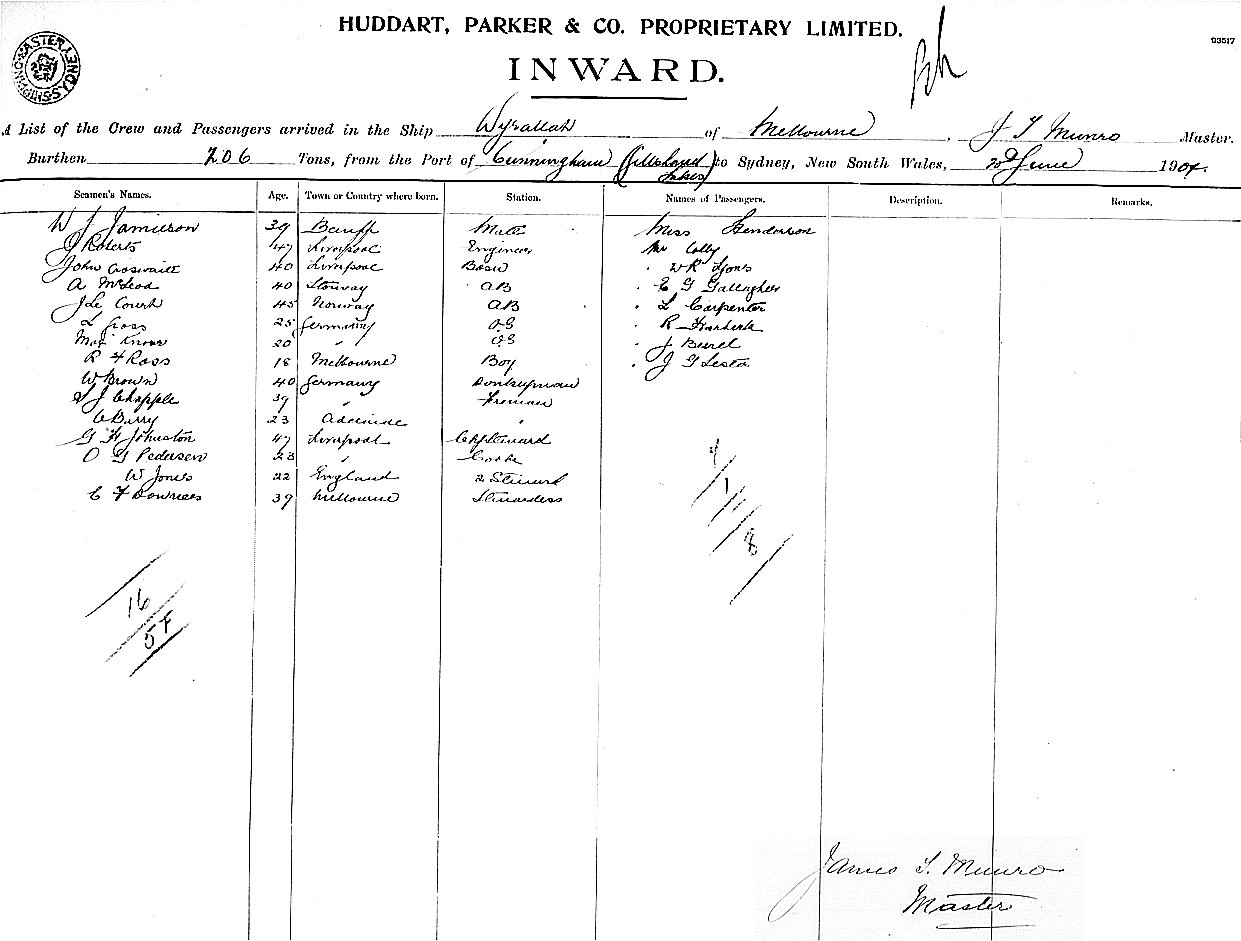 HUDDART, PARKER & CO. PROPRIETARY LIMITED.
93517
INWARD.
SHIPPING MASTER SYDNEY
A List of the Crew and Passengers arrived in the Ship Wyrallah of Melbourne, J T Munro Master.
Burthen 206 Tons, from the Port of Cunningham to Sydney, New South Wales, June 1904.
Seamen's Names. Age. Town or Country where born. Station. Names of Passengers. Description. Remarks.
W J Jamieson 39 Banff Mate Miss Henderson
J Roberts 47 Liverpool Engineer Mr Colby
John 40 Liverpool Bosn " W R Lyons
A McLeod 40 Stoway AB " E G Gallagher
J Le Court 45 Norway AB " L Carpenter
L 25 Germany OS " R
20 " OS " J
R H Ross 18 Melbourne Boy " J G Lester
W Brown 40 Germany Donkeyman
S J Chapple 39 " Fireman
C Barry 23 Adelaide "
G H Johnston 47 Liverpool Steward
O G Pedersen 23 " Cooke
W Jones 22 England 2 Steward
E F 39 Melbourne Stewardess
8
16
James T. Munro
Master